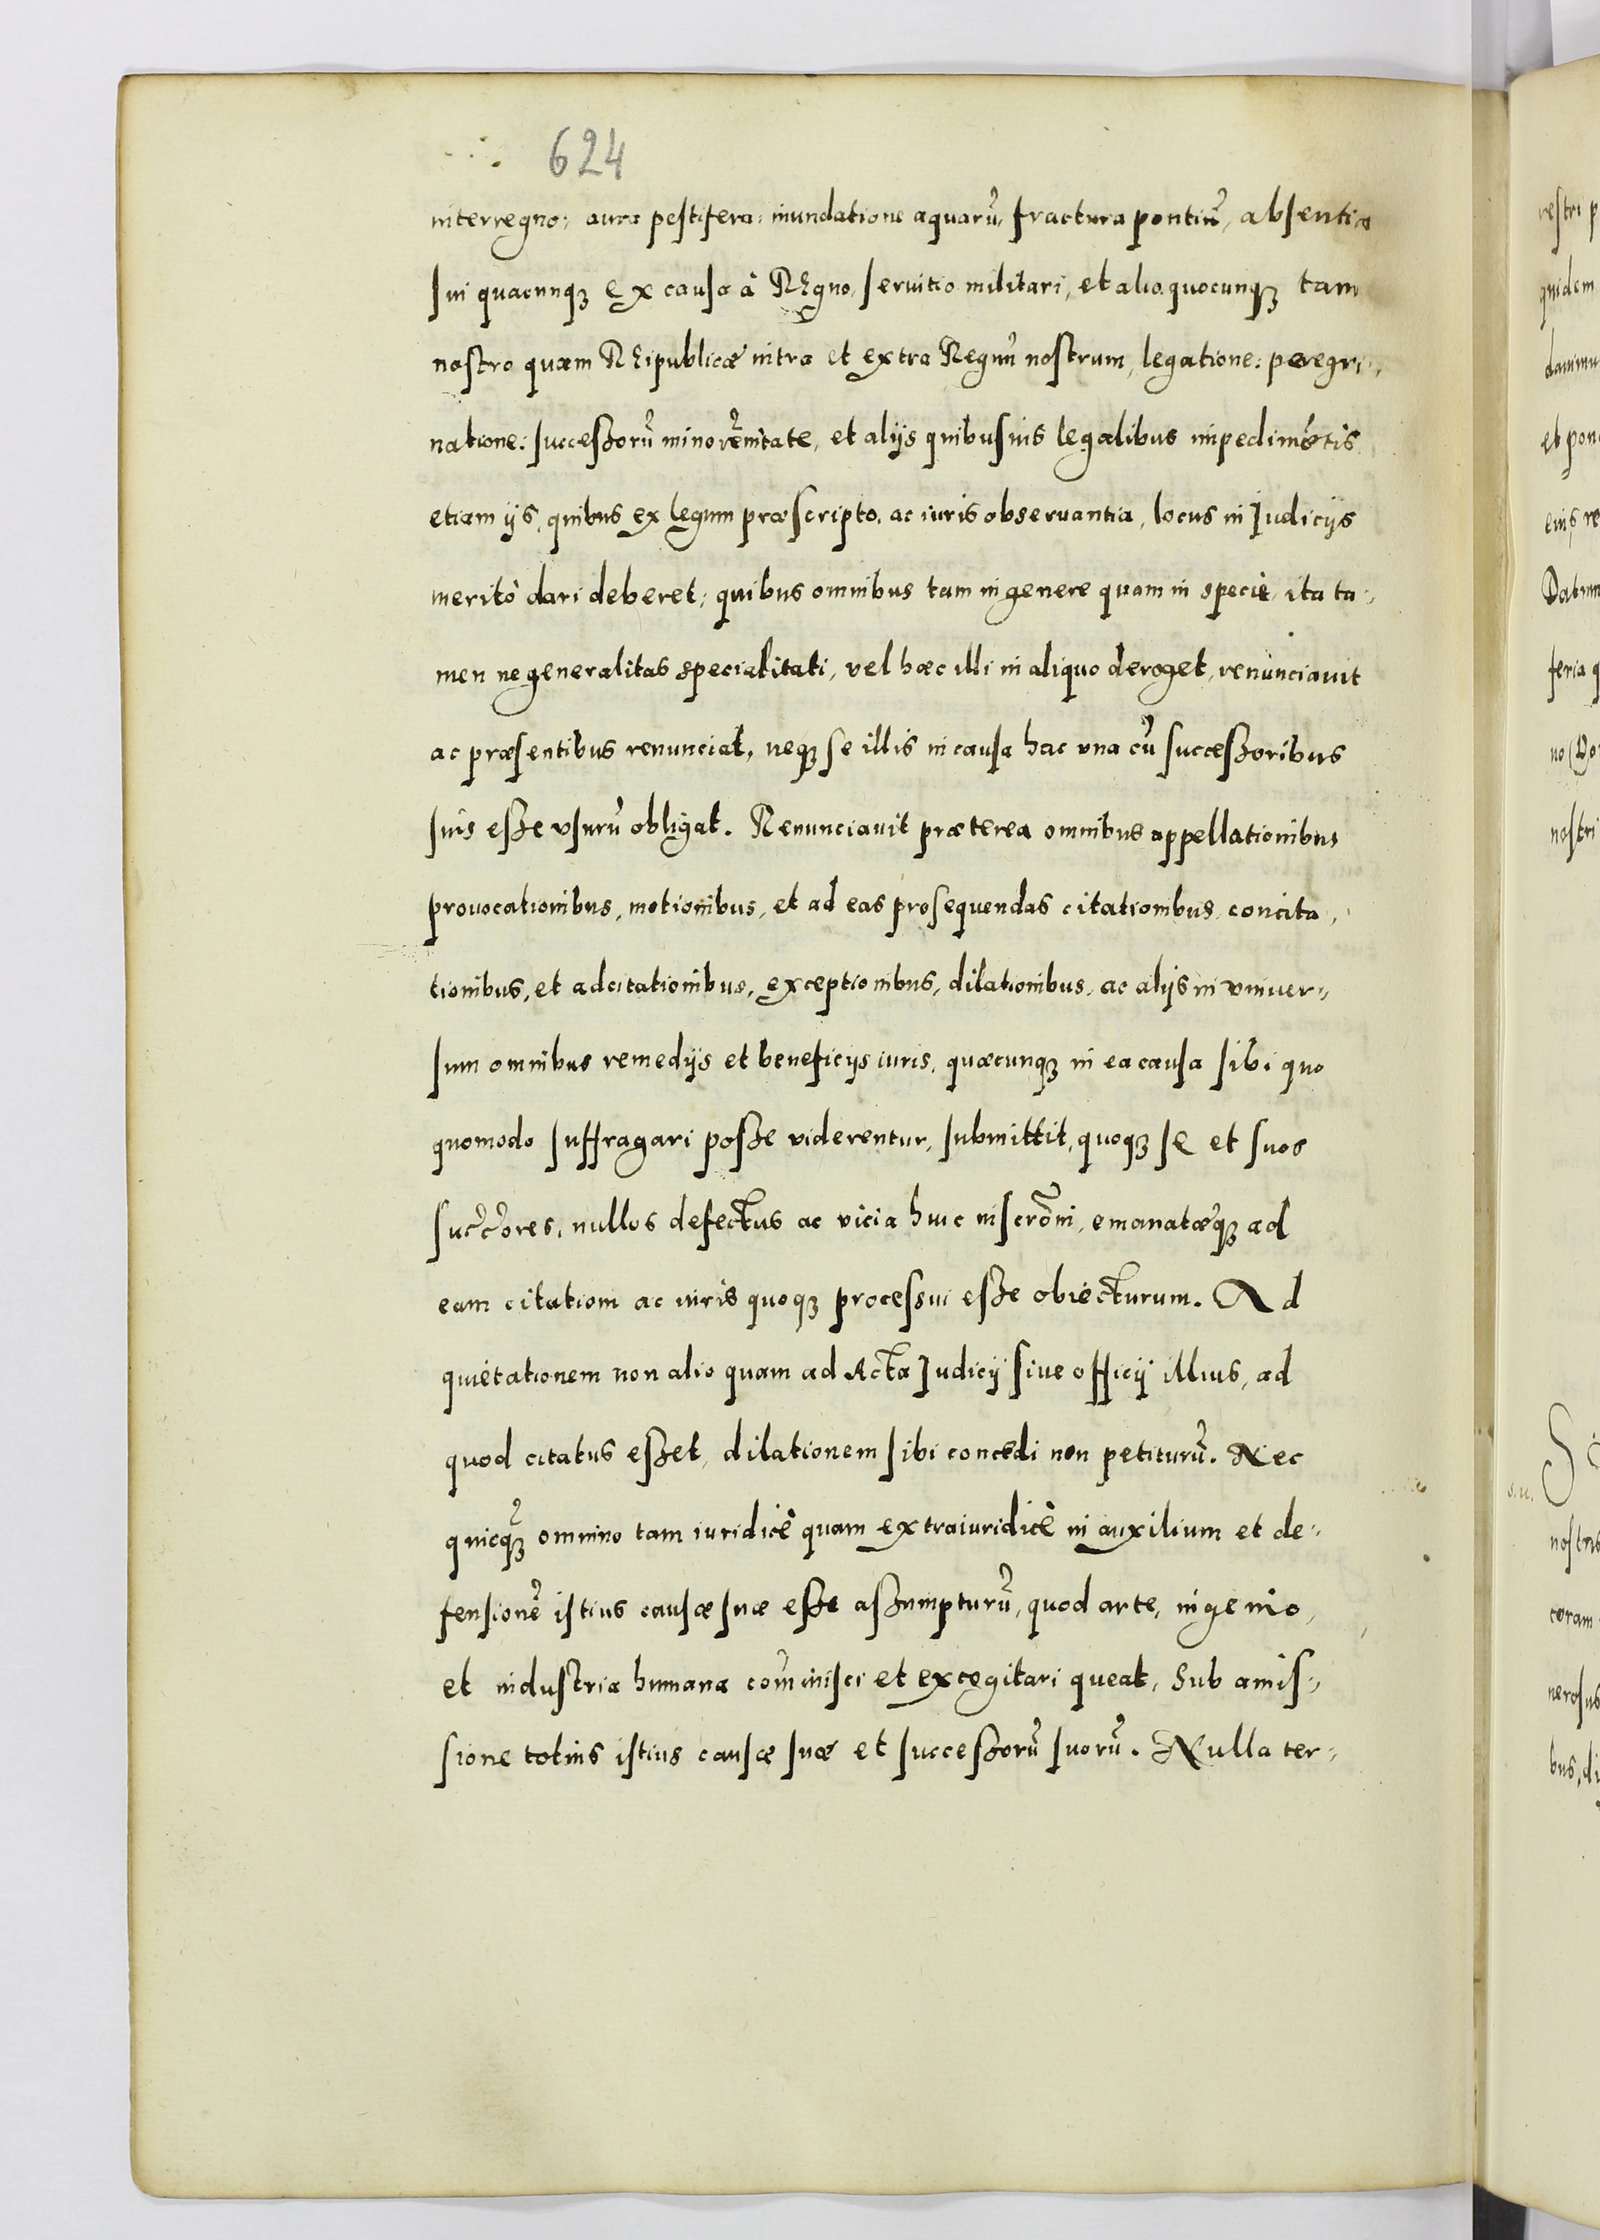 624
interregno: aura pestifera: inundatione aquarũ, fractura pontiũ, absentia
sui quacunqꝫ ex causa à Regno, seruitio militari, et alio quocunqꝫ tam
nostro quam Reipublicæ intra et extra Regnũ nostrum, legatione: peregri-
natione: successorũ minorẽnitate, et alijs quibusuis legalibus impedimẽtis
etiam ijs, quibus ex legum præscripto, ac iuris obseruantia, locus in Iudicijs
meritò dari deberet: quibus omnibus tam in genere quam in specie, ita ta-
men ne generalitas specialitati, vel hæc illi in aliquo deroget, renunciauit
ac præsentibus renunciat, neqꝫ se illis in causa hac vna cũ successoribus
suis esse vsurũ obligat. Renunciauit præterea omnibus appellationibus
prouocationibus, motionibus, et ad eas prosequendas citationibus, concita-
tionibus, et adcitationibus, exceptionibus, dilationibus, ac alijs in vniuer-
sum omnibus remedijs et beneficijs iuris, quæcunqꝫ in ea causa sibi quo
quomodo suffragari posse viderentur, submittit, quoqꝫ se et suos
succ̃ores, nullos defectus ac vicia huic inscrõni, emanatæqꝫ ad
eam citationi ac iuris quoqꝫ processui esse obiecturum. Ad
quietationem non alio quam ad Acta Iudicij siue officij illius, ad
quod citatus esset, dilationem sibi concedi non petiturũ. Nec
quicqꝫ̃ omnino tam iuridicè quam extraiuridicè in auxilium et de-
fensionẽ istius causæ suæ esse assumpturũ, quod arte, ingenio,
et industria humana com̃inisci et excogitari queat, Sub amis-
sione totius istius causæ suæ et successorũ suorũ. Nulla ter-
vestri p
quidem
et pon
eius re
Datum
feria q
nostri
nostris
coram
nerosus
bus, di